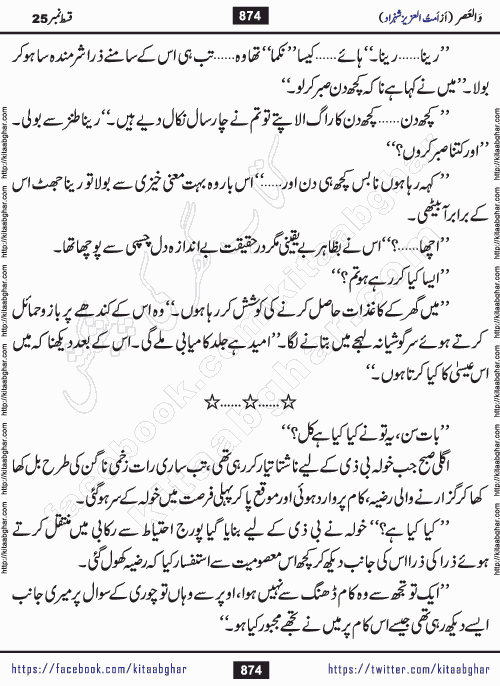 والعصر (از امت العزیز شہزاد) 874 قسط نمبر 25
’’رینا......رینا۔‘‘ ہائے......کیسا ’’نکما‘‘ تھا وہ......تب ہی اس کے سامنے ذرا شرمندہ سا ہو کر
بولا۔ ’’میں نے کہا ہے نا کہ کچھ دن صبر کر لو۔‘‘
’’کچھ دن......کچھ دن کا راگ الاپتے تو تم نے چار سال نکال دیے ہیں۔‘‘ رینا طنز سے بولی۔
’’اور کتنا صبر کروں؟‘‘
’’کہہ رہا ہوں نا بس کچھ ہی دن اور......‘‘ اس بار وہ بہت معنی خیزی سے بولا تو رینا جھٹ اس
کے برابر آ بیٹھی۔
’’اچھا......؟‘‘ اس نے بظاہر بے یقینی مگر درحقیقت بے اندازہ دل چسپی سے پوچھا تھا۔
’’ایسا کیا کر رہے ہو تم؟‘‘
’’میں گھر کے کاغذات حاصل کرنے کی کوشش کر رہا ہوں۔‘‘ وہ اس کے کندھے پر بازو حمائل
کرتے ہوئے سرگوشیانہ لہجے میں بتانے لگا۔ ’’امید ہے جلد کامیابی ملے گی۔ اس کے بعد دیکھنا کہ میں
اس عیسیٰ کا کیا کرتا ہوں۔‘‘
☆......☆......☆
’’بات سن، یہ تو نے کیا کیا ہے کل؟‘‘
اگلی صبح جب خولہ بی ذی کے لیے ناشتا تیار کر رہی تھی، تب ساری رات زخمی ناگن کی طرح بل کھا
کھا کر گزارنے والی رضیہ، کام پر وارد ہوئی اور موقع پا کر پہلی فرصت میں خولہ کے سر ہو گئی۔
’’کیا کیا ہے؟‘‘ خولہ نے بی ذی کے لیے بنایا گیا پورج احتیاط سے رکابی میں منتقل کرتے
ہوئے ذرا کی ذرا اس کی جانب دیکھ کر کچھ اس معصومیت سے استفسار کیا کہ رضیہ کھول گئی۔
’’ایک تو تجھ سے وہ کام ڈھنگ سے نہیں ہوا، اوپر سے وہاں تو چوری کے سوال پر میری جانب
ایسے دیکھ رہی تھی جیسے اس کام پر میں نے تجھے مجبور کیا ہو۔‘‘
https://facebook.com/kitaabghar 874 https://twitter.com/kitaabghar
http://kitaabghar.com
http://kitaabghar.com
facebook.com/kitaabghar
kitaabghar.com